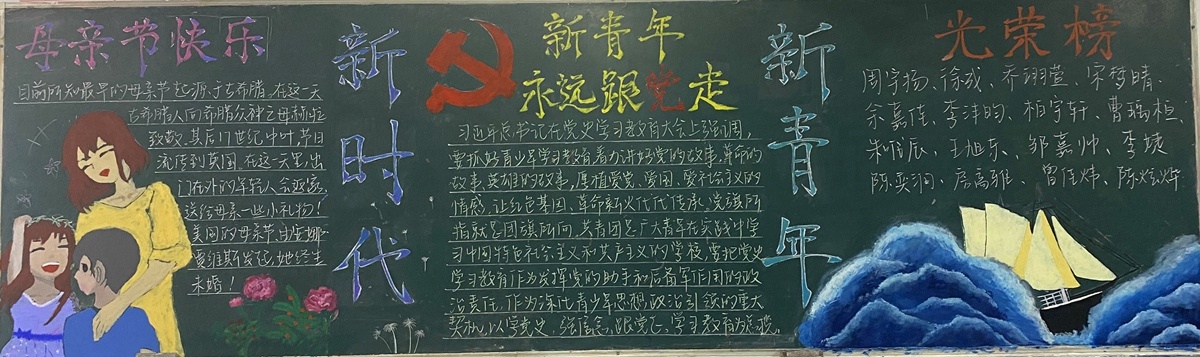 母亲节快乐
目前所知最早的母亲节起源于古希腊,在这一天
古希腊人向希腊众神之母赫拉
致敬,其后17世纪中叶,节日
流传到英国,在这一天里,出
门在外的年轻人会回家,
送给母亲一些小礼物!
美国的母亲节由安娜
贾维斯发起,她终生
未婚!
新时代
新青年
永远跟党走
习近平总书记在党史学习教育大会上强调,
要抓好青少年学习教育着力讲好党的故事,革命的
故事,英雄的故事,厚植爱党、爱国、爱社会主义的
情感,让红色基因、革命薪火代代传承,党旗所
指就是团旗所向,共青团是广大青年在实践中学
习中国特色社会主义和共产主义的学校,要把党史
学习教育作为发挥党的助手和后备军作用的政
治责任,作为深化青少年思想政治引领的重大
契机,以学党史、强信念、跟党走,学习教育为
新青年
光荣榜
周宇扬、徐成、乔翊萱、宋梦晴、
余嘉陈、李沣昀、柏宇轩、曹瑞桓、
朱信辰、王旭东、邹嘉帅、李婕
陈奕润、居高雅、曾佳炜、陈炫烨